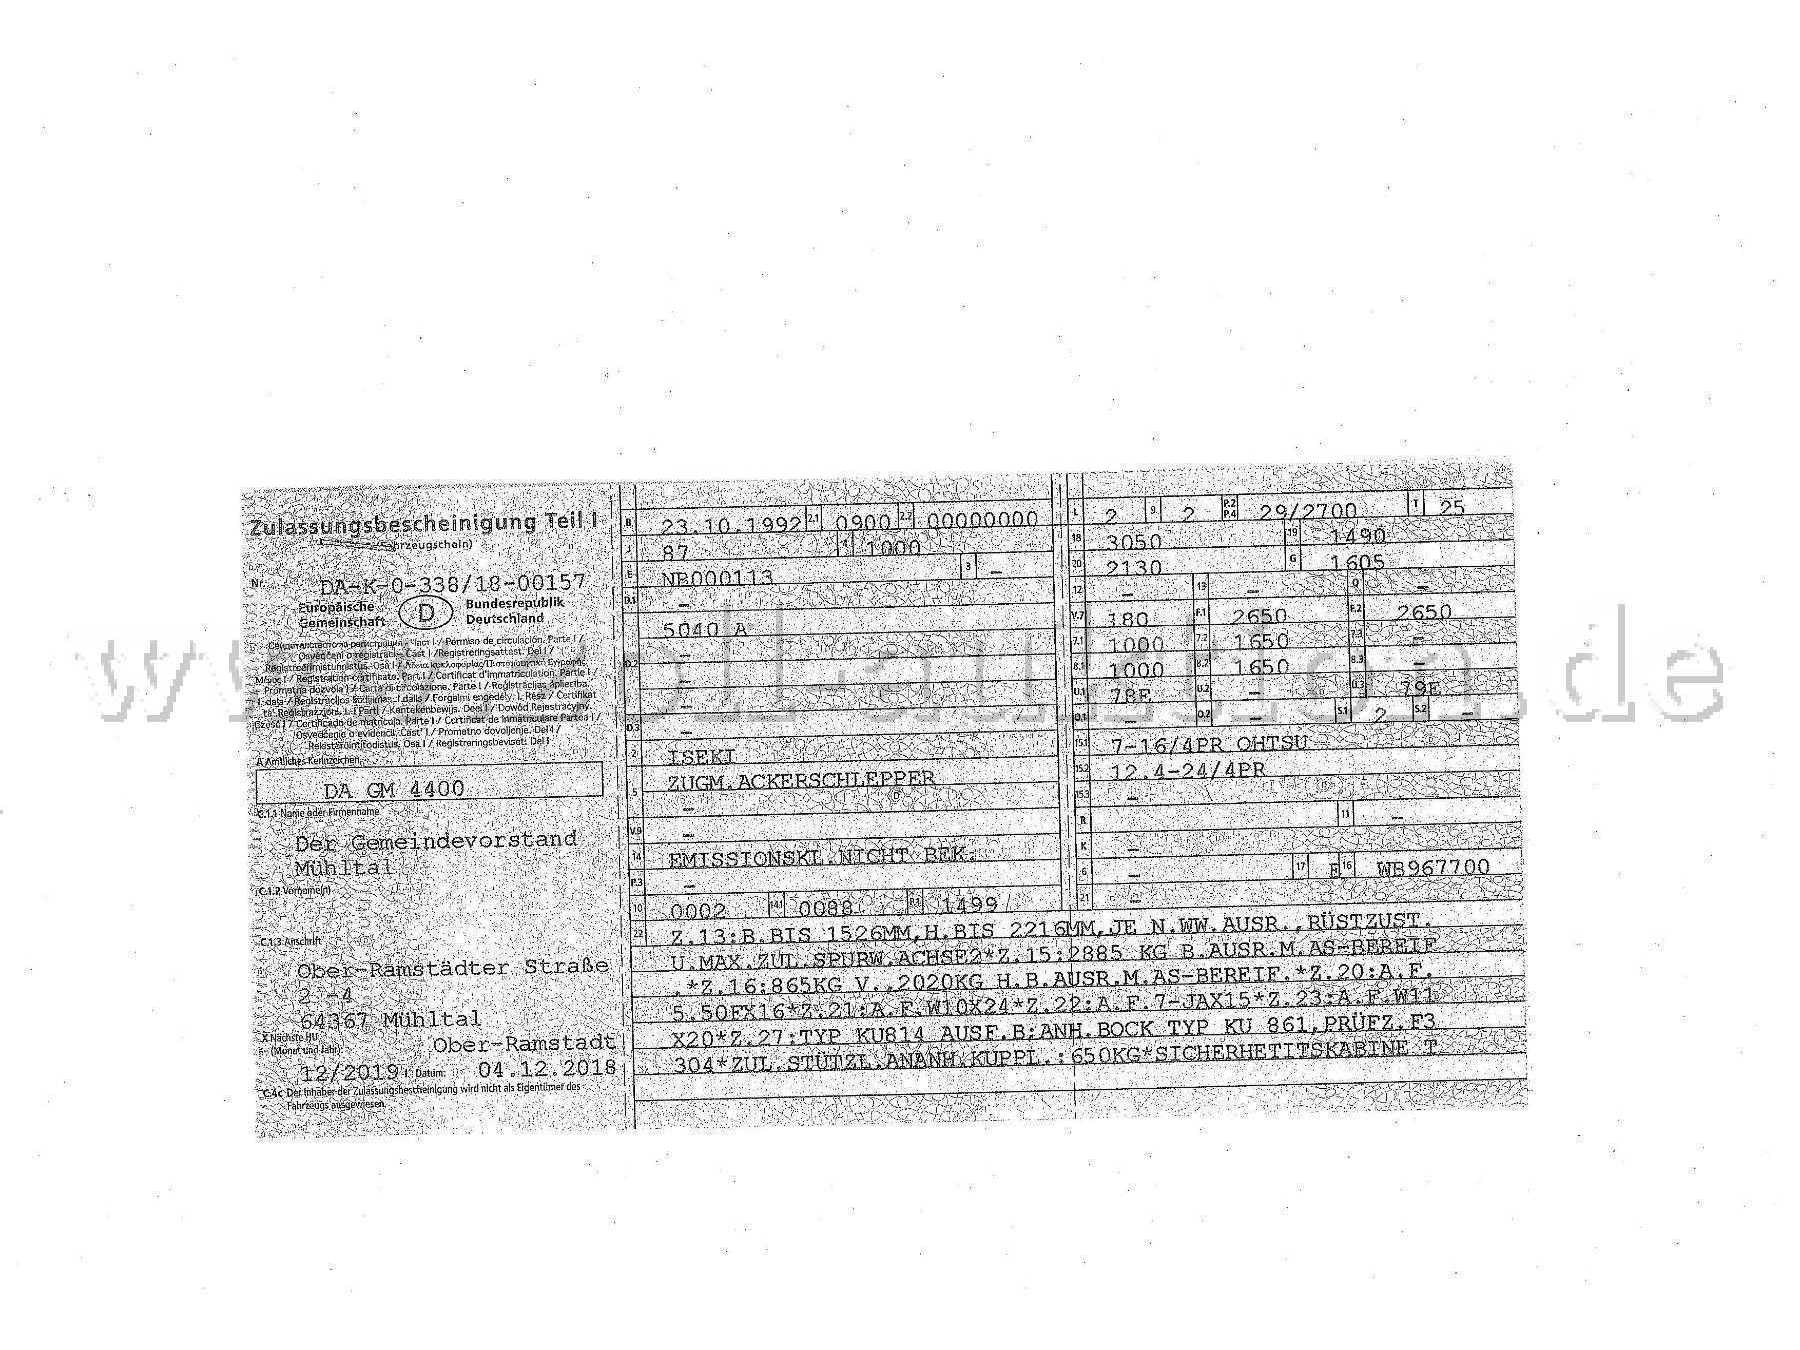 Zulassungsbescheinigung Teil I
(Fahrzeugschein)
Nr. DA-K-0-338/18-00157
Europäische Gemeinschaft D Bundesrepublik Deutschland
Osvědčení o registraci – Část I / Registreringsattest. Del I /
MŰszI / Registration certificate. Part I / Certificat d'immatriculation. Partie I /
Prometna dozvola I / Carta di circolazione. Parte I / Reģistrācijas apliecība.
I. daļa / Registracijos liudijimas. I dalis / Forgalmi engedély. I. Rész / Ċertifikat
ta' Reġistrazzjoni. L-I Parti / Kentekenbewijs. Deel I / Dowód Rejestracyjny.
Część I / Certificado de matrícula. Parte I / Certificat de înmatriculare Partea I /
Osvedčenie o evidencii. Časť I / Prometno dovoljenje. Del I /
Rekisteröintitodistus. Osa I / Registreringsbeviset. Del I
A Amtliches Kennzeichen
DA GM 4400
C.1.1 Name oder Firmenname
Der Gemeindevorstand
Mühltal
C.1.2 Vorname(n)
C.1.3 Anschrift
Ober-Ramstädter Straße
2 -4
64367 Mühltal
X Nächste HU (Monat und Jahr):
Ober-Ramstadt
12/2019 I Datum: 04.12.2018
C.4c Der Inhaber der Zulassungsbescheinigung wird nicht als Eigentümer des
Fahrzeugs ausgewiesen.
B 23.10.1992 2.1 0900 2.2 00000000
J 87 4 1000
E NB000113 3 –
D.1 –
5040 A
D.2 –
–
D.3 –
2 ISEKI
5 ZUGM.ACKERSCHLEPPER
–
V.9 –
14 EMISSIONSKL.NICHT BEK.
P.3 –
10 0002 14.1 0088 P.1 1499
L 2 9 2 P.2 P.4 29/2700 T 25
18 3050 19 1490
20 2130 G 1605
12 – 13 – Q –
V.7 180 F.1 2650 F.2 2650
7.1 1000 7.2 1650 7.3 –
8.1 1000 8.2 1650 8.3 –
U.1 78E U.2 – U.3 79E
O.1 – O.2 – S.1 2 S.2
15.1 7-16/4PR OHTSU
15.2 12.4-24/4PR
15.3 –
R 11 –
K –
6 – 17 E 16 WB967700
21 –
22 Z.13:B.BIS 1526MM,H.BIS 2216MM,JE N.WW.AUSR.,RÜSTZUST.
U.MAX.ZUL.SPURW.ACHSE2*Z.15:2885 KG B.AUSR.M.AS-BEREIF
.*Z.16:865KG V.,2020KG H.B.AUSR.M.AS-BEREIF.*Z.20:A.F.
5.50FX16*Z.21:A.F.W10X24*Z.22:A.F.7-JAX15*Z.23:A.F.W11
X20*Z.27:TYP KU814 AUSF.B;ANH.BOCK TYP KU 861,PRÜFZ.F3
304*ZUL.STÜTZL.ANANH.KUPPL.:650KG*SICHERHETITSKABINE T